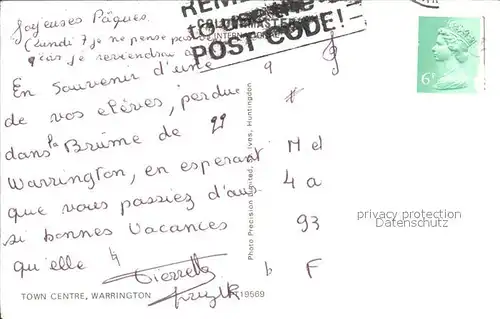 Joyeuses Pâques.
(lundi 7 je ne pense pas
que je reviendrai
En Souvenir d'une
de vos elèves, perdue
dans la Brume de
Warrington, en esperant
que vous passiez d'aussi
si bonnes Vacances
qu'elle
Pierrette
TOWN CENTRE, WARRINGTON
PT19569
Photo Precision Limited, St. Ives, Huntingdon
COLOURMASTER
INTERNATIONAL
REMEMBER
to use the
POST CODE!
6P
M et
4 a
93
F
privacy protection
Datenschutz